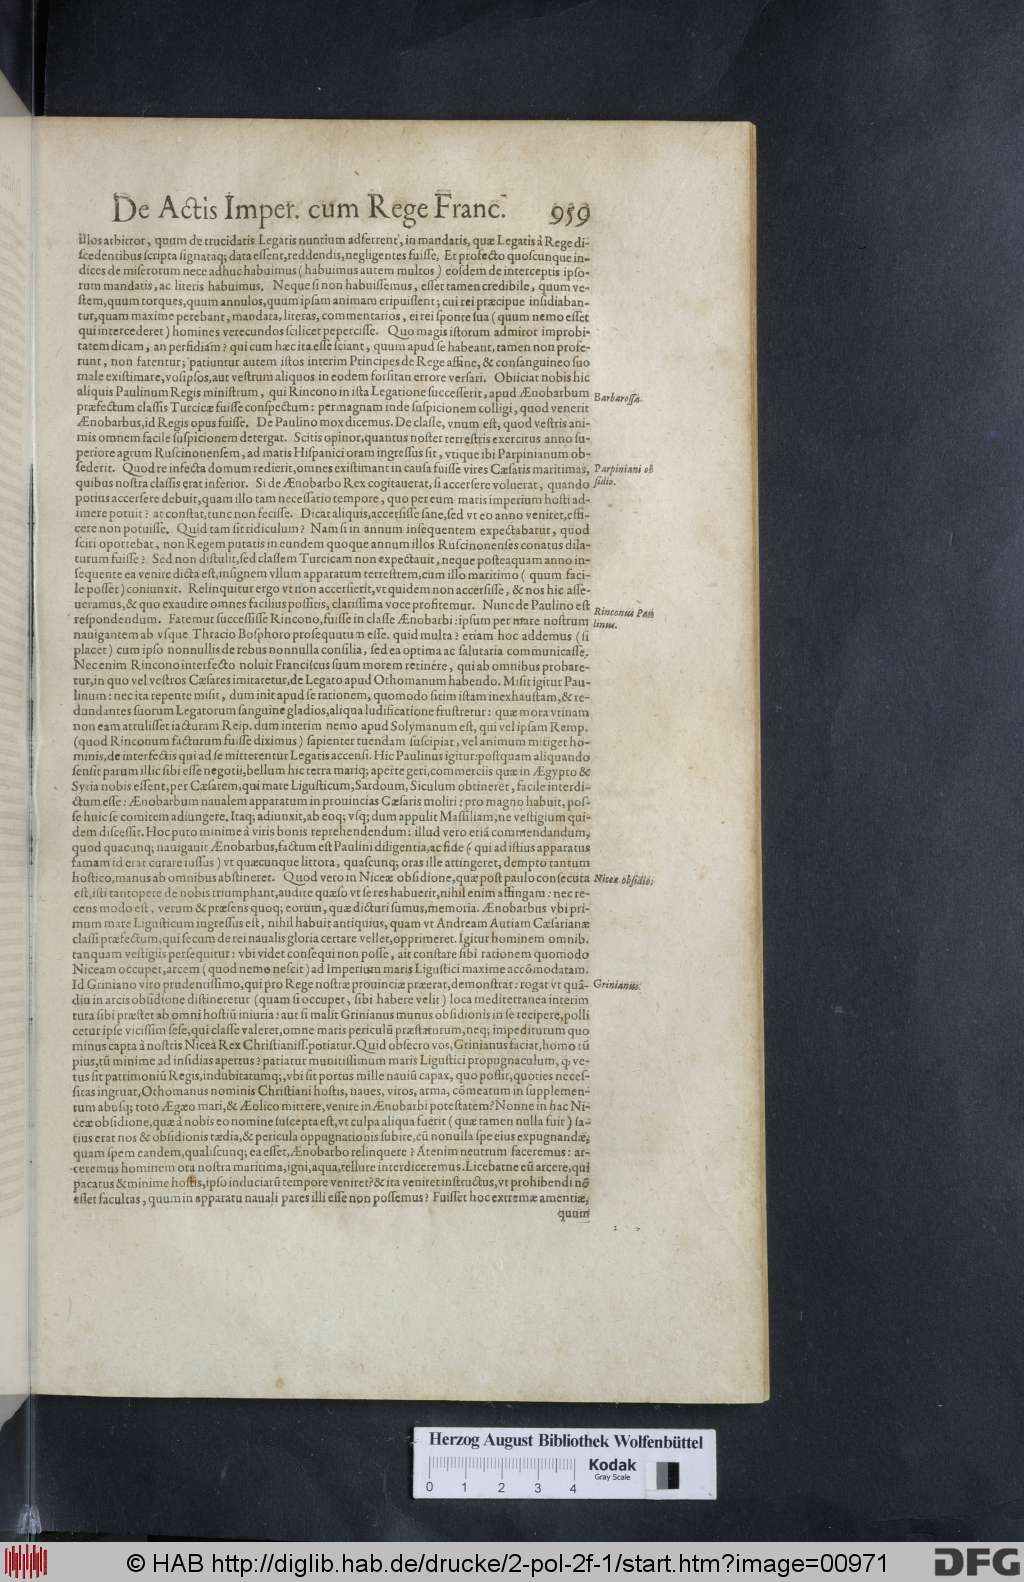 De Actis Imper. cum Rege Franc. 959
illos arbitror, quum de trucidatis Legatis nuntium adferrent, in mandatis, quæ Legatis à Rege di-
scedentibus scripta signataq; data essent, reddendis, negligentes fuisse. Et profecto quoscunque in-
dices de miserorum nece adhuc habuimus (habuimus autem multos) eosdem de interceptis ipso-
rum mandatis, ac literis habuimus. Neque si non habuissemus, esset tamen credibile, quum ve-
stem, quum torques, quum annulos, quum ipsam animam eripuissent; cui rei præcipue insidiaban-
tur, quam maxime petebant, mandata, literas, commentarios, ei rei sponte sua (quum nemo esset
qui intercederet) homines verecundos scilicet pepercisse. Quo magis istorum admiror improbi-
tatem dicam, an perfidiam? qui cum hæc ita esse sciant, quum apud se habeant, tamen non profe-
runt, non fatentur; patiuntur autem istos interim Principes de Rege affine, & consanguineo suo
male existimare, vosipsos, aut vestrum aliquos in eodem forsitan errore versari. Obiiciat nobis hic
aliquis Paulinum Regis ministrum, qui Rincono in ista Legatione successerit, apud Ænobarbum
Barbarossa.
præfectum classis Turcicæ fuisse conspectum: permagnam inde suspicionem colligi, quod venerit
Ænobarbus, id Regis opus fuisse. De Paulino mox dicemus. De classe, vnum est, quod vestris ani-
mis omnem facile suspicionem detergat. Scitis opinor, quantus noster terrestris exercitus anno su-
periore agrum Ruscinonensem, ad maris Hispanici oram ingressus sit, vtique ibi Parpinianum ob-
sederit. Quod re infecta domum redierit, omnes existimant in causa fuisse vires Cæsaris maritimas,
Parpiniani ob
sidio.
quibus nostra classis erat inferior. Si de Ænobarbo Rex cogitauerat, si accersere voluerat, quando
potius accersere debuit, quam illo tam necessario tempore, quo per eum maris imperium hosti ad-
imere potuit? at constat, tunc non fecisse. Dicat aliquis, accersisse sane, sed vt eo anno veniret, effi-
cere non potuisse. Quid tam sit ridiculum? Nam si in annum insequentem expectabatur, quod
sciri oportebat, non Regem putatis in eundem quoque annum illos Ruscinonenses conatus dila-
turum fuisse? Sed non distulit, sed classem Turcicam non expectauit, neque posteaquam anno in-
sequente ea venire dicta est, insignem vllum apparatum terrestrem, cum illo maritimo (quum faci-
le posset) coniunxit. Relinquitur ergo vt non accersierit, vt quidem non accersisse, & nos hic asse-
ueramus, & quo exaudire omnes facilius possitis, clarissima voce profitemur. Nunc de Paulino est
Rinconus Pau
linus.
respondendum. Fatemur successisse Rincono, fuisse in classe Ænobarbi: ipsum per mare nostrum
nauigantem ab vsque Thracio Bosphoro prosequutum esse. quid multa? etiam hoc addemus (si
placet) cum ipso nonnullis de rebus nonnulla consilia, sed ea optima ac salutaria communicasse.
Nec enim Rincono interfecto noluit Franciscus suum morem retinere, qui ab omnibus probare-
tur, in quo vel vestros Cæsares imitaretur, de Legato apud Othomanum habendo. Misit igitur Pau-
linum: nec ita repente misit, dum init apud se rationem, quomodo sitim istam inexhaustam, & re-
dundantes suorum Legatorum sanguine gladios, aliqua ludificatione frustretur: quæ mora vtinam
non eam attulisset iacturam Reip. dum interim nemo apud Solymanum est, qui vel ipsam Remp.
(quod Rinconum facturum fuisse diximus) sapienter tuendam suscipiat, vel animum mitiget ho-
minis, de interfectis qui ad se mitterentur Legatis accensi. Hic Paulinus igitur: postquam aliquando
sensit parum illic sibi esse negotii, bellum hic terra mariq; aperte geri, commerciis quæ in Ægypto &
Syria nobis essent, per Cæsarem, qui mare Ligusticum, Sardoum, Siculum obtineret, facile interdi-
ctum esse: Ænobarbum naualem apparatum in prouincias Cæsaris moliri: pro magno habuit, pos-
se huic se comitem adiungere. Itaq; adiunxit, ab eoq; vsq; dum appulit Massiliam, ne vestigium qui-
dem discessit. Hoc puto minime à viris bonis reprehendendum: illud vero etiã commendandum,
quod quacunq; nauigauit Ænobarbus, factum est Paulini diligentia, ac fide (qui ad istius apparatus
famam id erat curare iussus) vt quæcunque littora, quascunq; oras ille attingeret, dempto tantum
hostico, manus ab omnibus abstineret. Quod vero in Niceæ obsidione, quæ post paulo consecuta
Niceæ obsidio.
est, isti tantopere de nobis triumphant, audite quæso vt se res habuerit, nihil enim affingam: nec re-
cens modo est, verum & præsens quoq; eorum, quæ dicturi sumus, memoria. Ænobarbus vbi pri-
mum mare Ligusticum ingressus est, nihil habuit antiquius, quam vt Andream Auriam Cæsarianæ
classi præfectum, qui secum de rei naualis gloria certare vellet, opprimeret. Igitur hominem omnib.
tanquam vestigiis persequitur: vbi videt consequi non posse, ait constare sibi rationem quomodo
Niceam occupet, arcem (quod nemo nescit) ad Imperium maris Ligustici maxime accõmodatam.
Id Griniano viro prudentissimo, qui pro Rege nostræ prouinciæ præerat, demonstrat: rogat vt quã-
Grinianus.
diu in arcis obsidione distineretur (quam si occupet, sibi habere velit) loca mediterranea interim
tuta sibi præstet ab omni hostiũ iniuria: aut si malit Grinianus munus obsidionis in se recipere, polli
cetur ipse vicissim sese, qui classe valeret, omne maris periculũ præstaturum, neq; impediturum quo
minus capta à nostris Nicea Rex Christianiss. potiatur. Quid obsecro vos, Grinianus faciat, homo tũ
pius, tũ minime ad insidias apertus? patiatur munitissimum maris Ligustici propugnaculum, q, ve-
tus sit patrimoniũ Regis, indubitatumq;, vbi sit portus mille nauiũ capax, quo possit, quoties neces-
sitas ingruat, Othomanus nominis Christiani hostis, naues, viros, arma, cõmeatum in supplemen-
tum abusq; toto Ægæo mari, & Æolico mittere, venire in Ænobarbi potestatem? Nonne in hac Ni-
ceæ obsidione, quæ à nobis eo nomine suscepta est, vt culpa aliqua fuerit (quæ tamen nulla fuit) sa-
tius erat nos & obsidionis tædia, & pericula oppugnationis subire, cũ nonulla spe eius expugnandæ,
quam spem eandem, qualiscunq; ea esset, Ænobarbo relinquere? Atenim neutrum faceremus: ar-
ceremus hominem ora nostra maritima, igni, aqua, tellure interdiceremus. Licebatne eũ arcere, qui
pacatus & minime hostis, ipso induciarũ tempore veniret? & ita veniret instructus, vt prohibendi nõ
esset facultas, quum in apparatu nauali pares illi esse non possemus? Fuisset hoc extremæ amentiæ,
quum
Herzog August Bibliothek Wolfenbüttel
Kodak
Gray Scale
0 1 2 3 4
© HAB http://diglib.hab.de/drucke/2-pol-2f-1/start.htm?image=00971
DFG